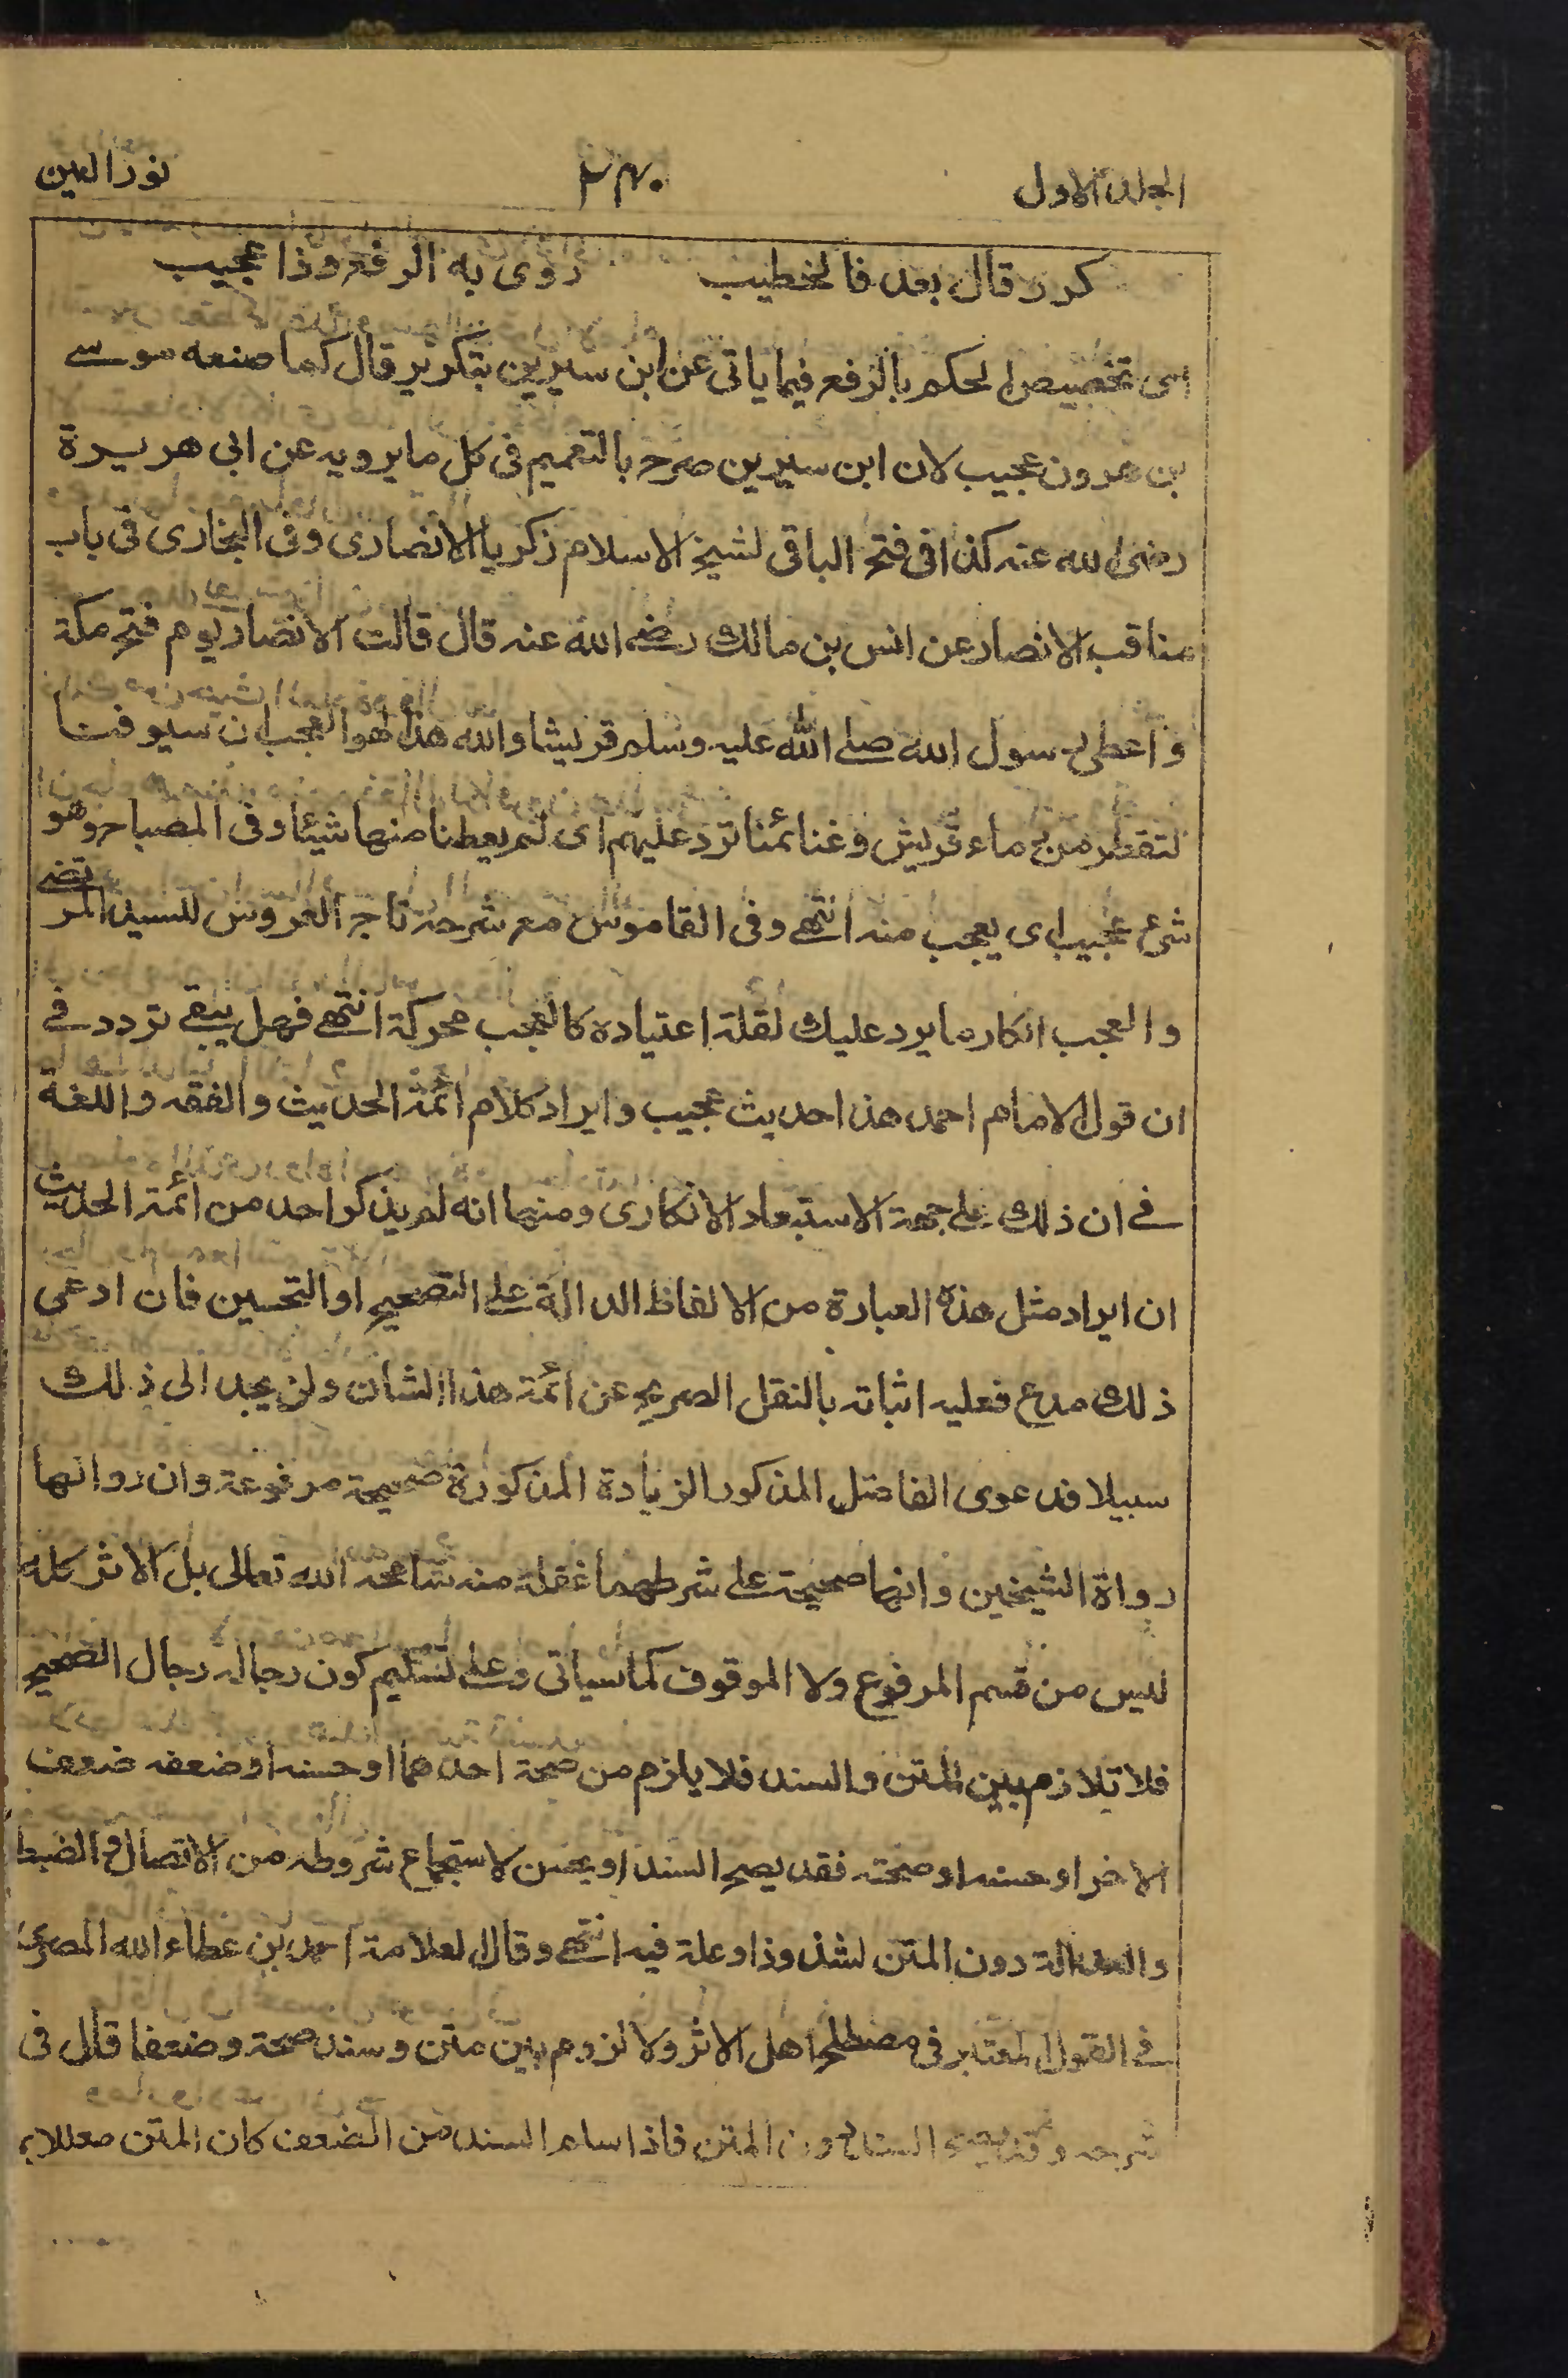 الجلد الاول ٢٣٠ نور العين
كرر قال بعد فالخطيب روى به الرفع وذا عجيب
اى تخصيص الحكم بالرفع فيما ياتى عن ابن سيرين بتكرير قال كما صنعه موسے
بن هرون عجيب لان ابن سيرين صرح بالتعميم فى كل ما يرويه عن ابى هريرة
رضى الله عنه كذا فى فتح الباقى لشيخ الاسلام زكريا الانصارى وفى البخارى فى باب
مناقب الانصار عن انس بن مالك رضے الله عنه قال قالت الانصار يوم فتح مكة
واعطى رسول الله صلے الله عليه وسلم قريشا والله هذا لهو العجب ان سيوفنا
لتقطر من دماء قريش وغنائمنا ترد عليهم اى لم يعطنا منها شيئا وفى المصباح وهو
شئ عجيب اى يعجب منه انتهے وفى القاموس مع شرحه تاج العروس للسيد المرتضے
والعجب انكار ما يرد عليك لقلة اعتياده كالعجب محركة انتهے فهل يبقے تردد فے
ان قول الامام احمد هذا حديث عجيب وايراد كلام ائمة الحديث والفقه واللغة
فے ان ذلك علے جهة الاستبعاد الانكارى ومنها انه لم يذكر احد من ائمة الحديث
ان ايراد مثل هذه العبارة من الالفاظ الدالة علے التصحيح او التحسين فان ادعى
ذلك مدع فعليه اثباته بالنقل الصريح عن ائمة هذا الشان ولن يجد الى ذلك
سبيلا فدعوى الفاضل المذكور الزيادة المذكورة صحيحة مرفوعة وان رواتها
رواة الشيخين وانها صحيحة علے شرطهما غفلة منه سامحه الله تعالى بل الاثر كله
ليس من قسم المرفوع ولا الموقوف كما سياتى وعلے تسليم كون رجاله رجال الصحيح
فلا تلازم بين المتن والسند فلا يلزم من صحة احدهما او حسنه او ضعفه ضعف
الاخر او حسنه او صحته فقد يصح السند او يحسن لاستجماع شروطه من الاتصال والضبط
والعدالة دون المتن لشذوذ او علة فيه انتهے وقال العلامة احمد بن عطاء الله المصرى
فے القول المعتبر فى مصطلح اهل الاثر ولا لزوم بين متن وسند صحة وضعفا قال فى
شرحه وقد يصح السند دون المتن فاذا سلم السند من الضعف كان المتن معللا